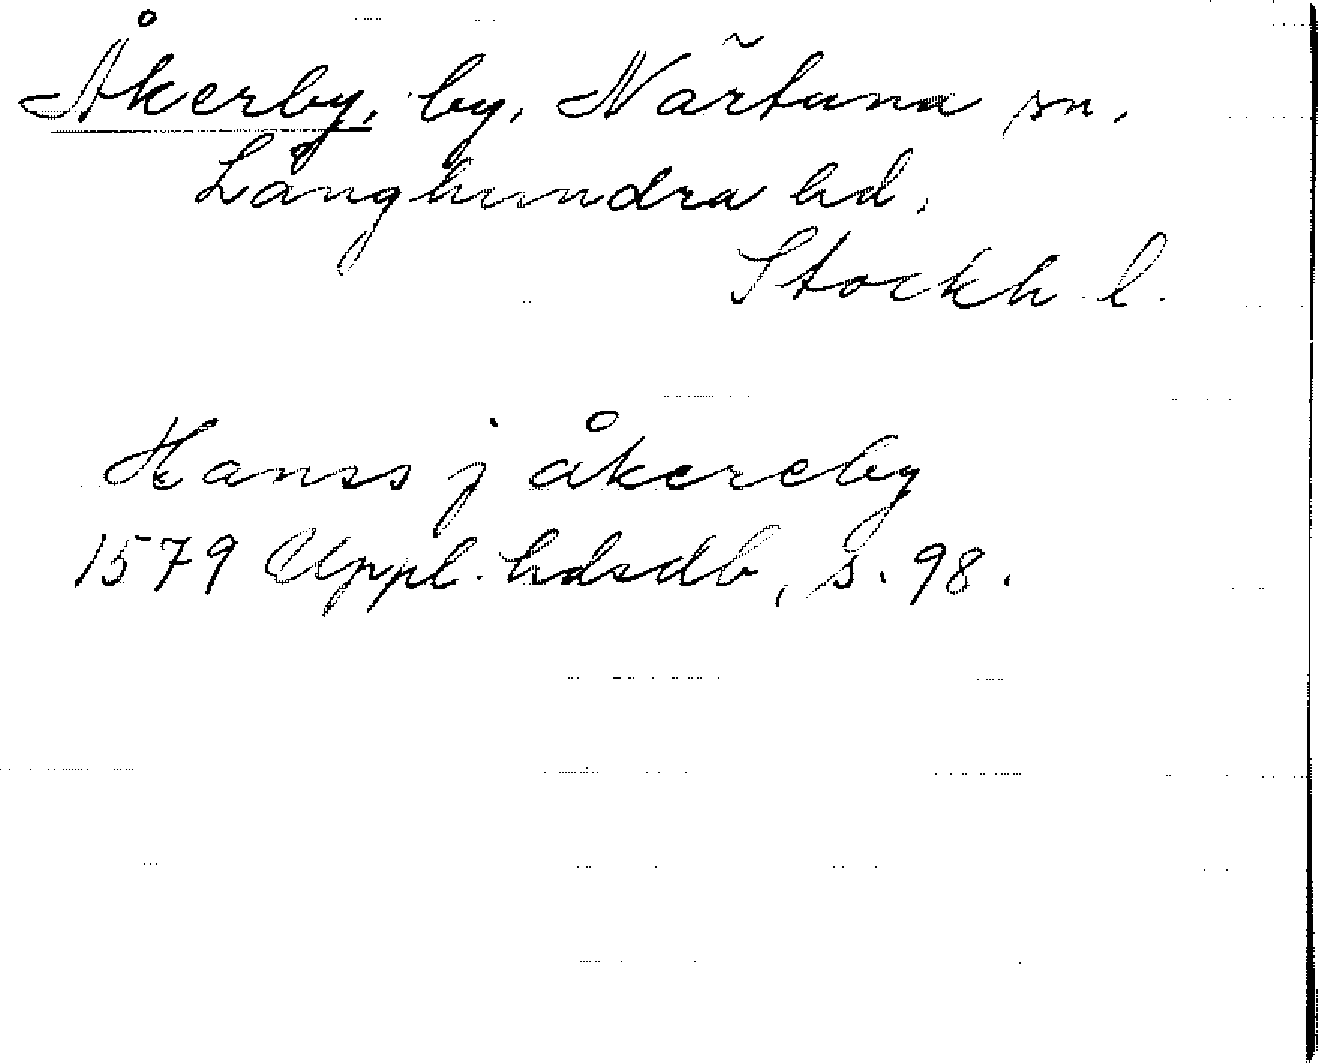 Åkerby, by, Närtuna sn.
Långhundra hd.
Stockh. l.
Hanss j åkereby
1579 Uppl. hdsdb, s. 98.